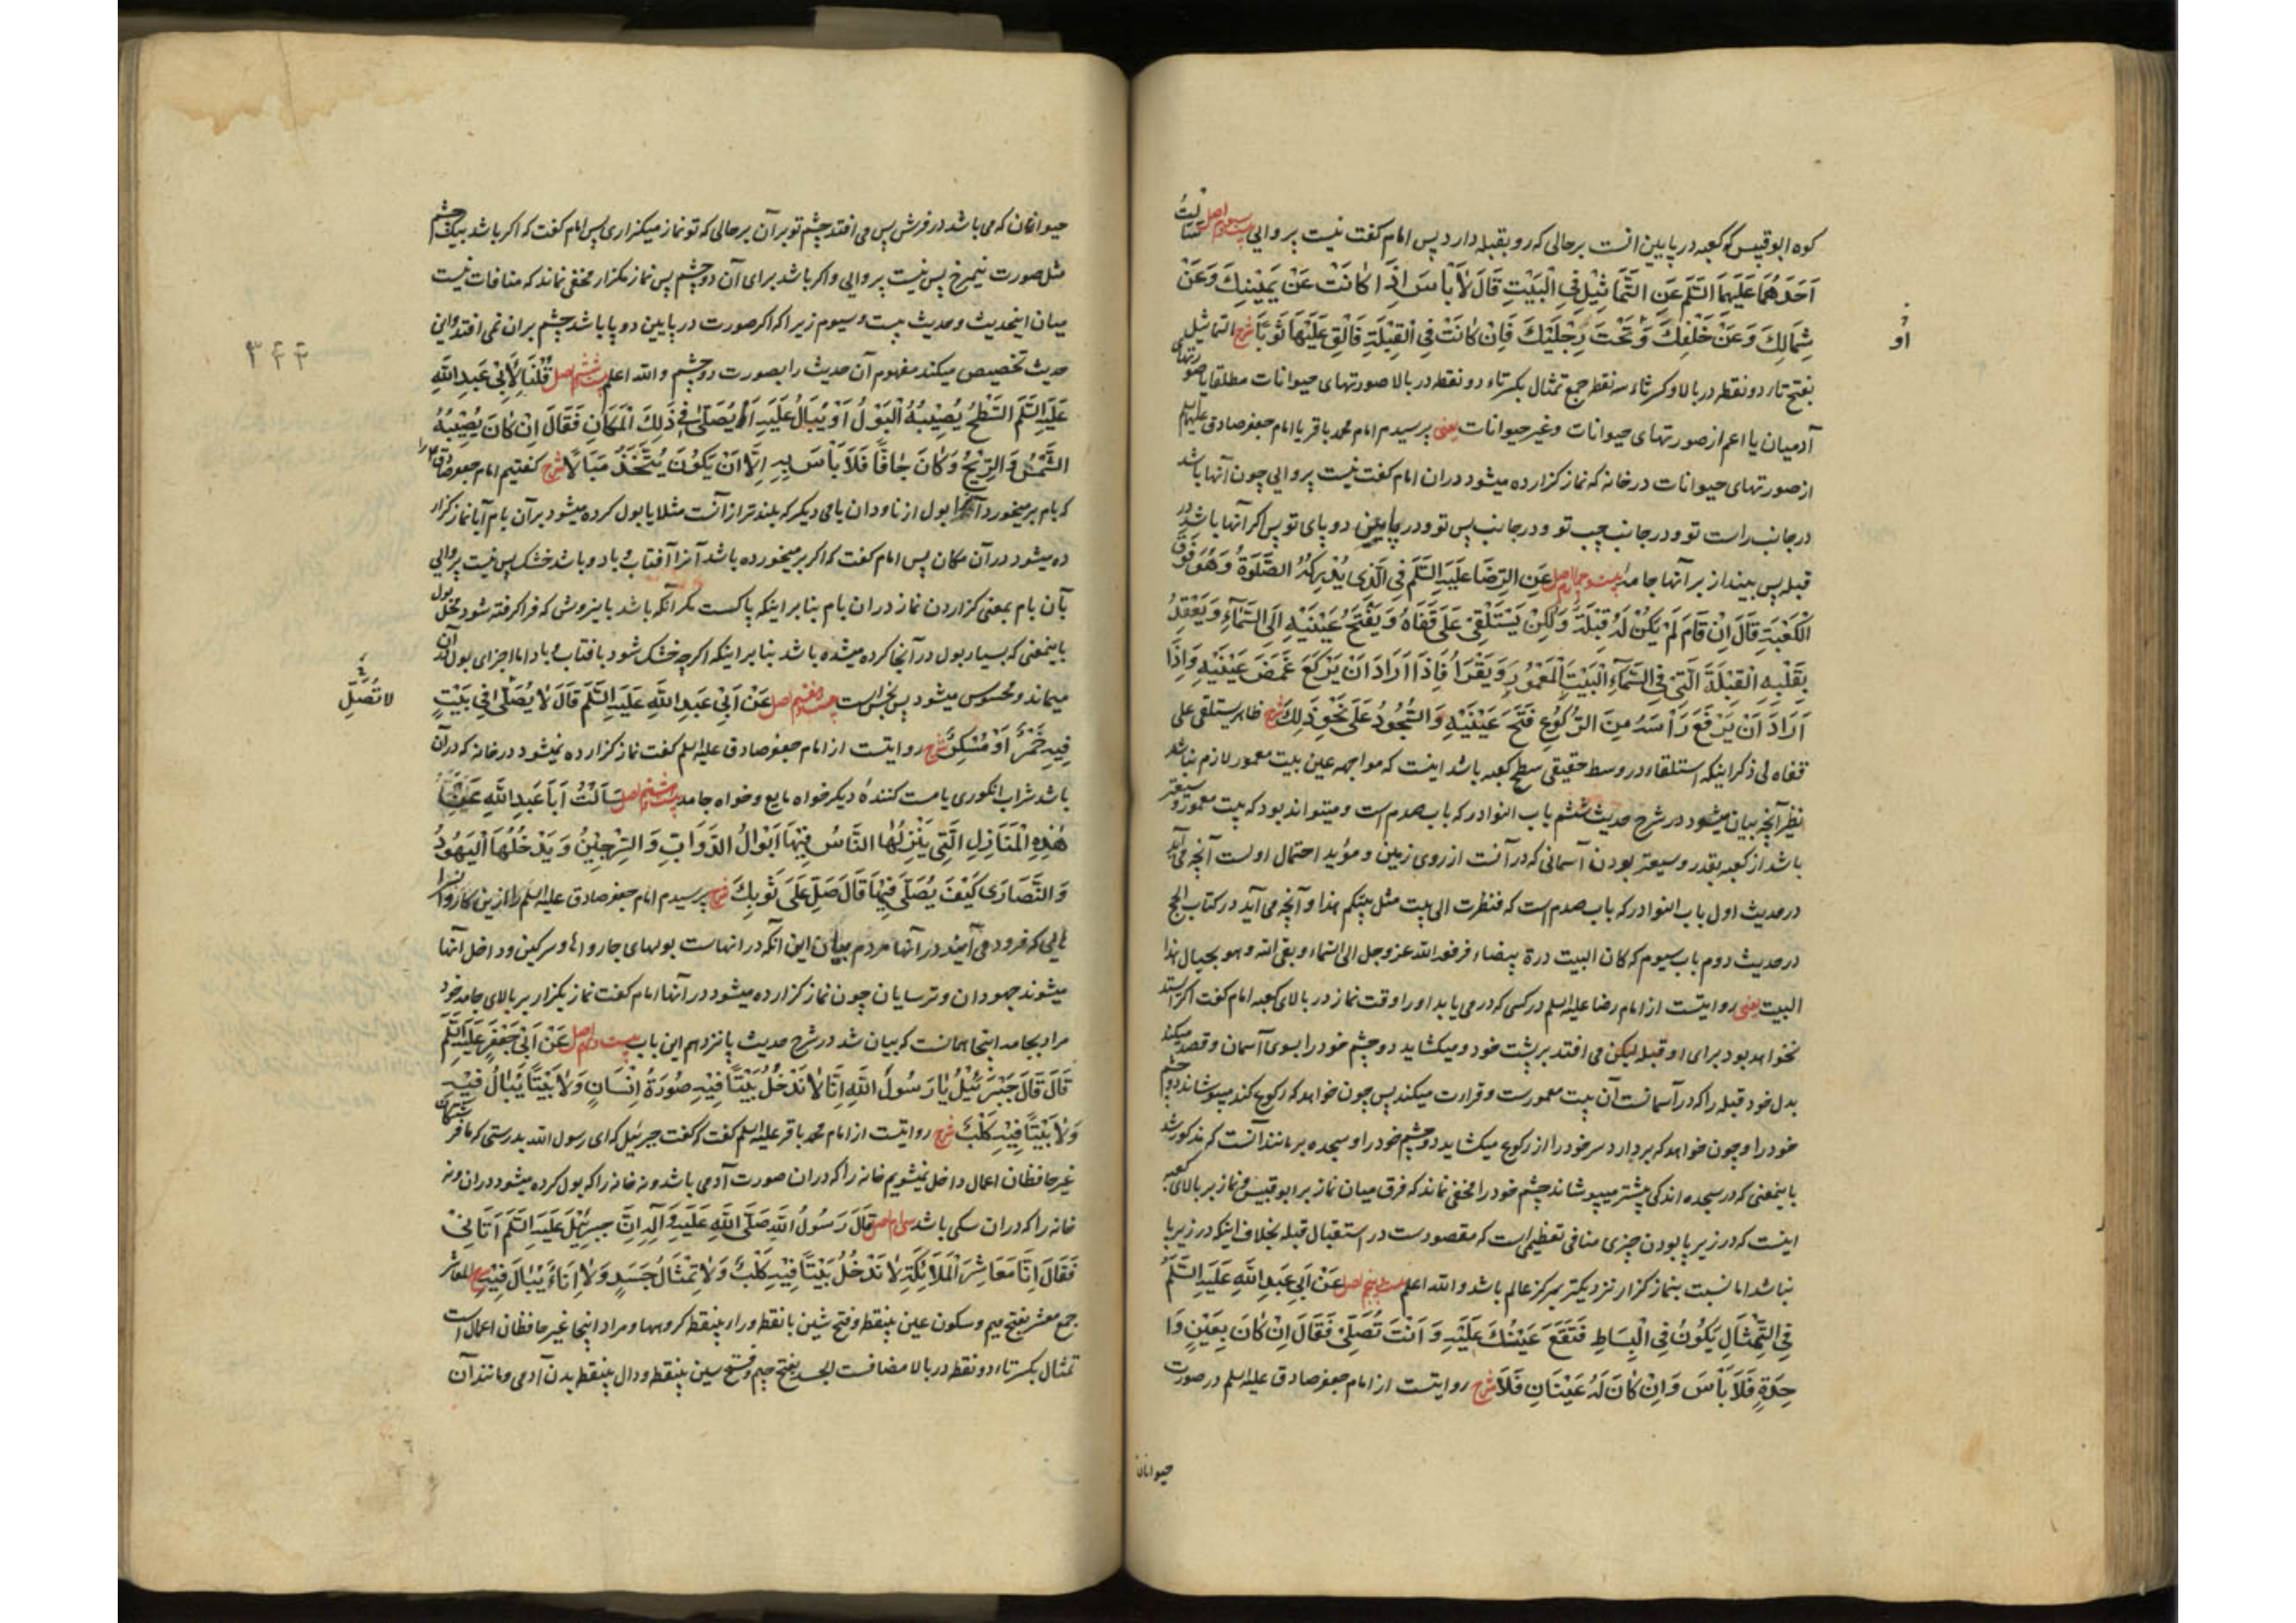 کوه ابوقبیس که کعبه در پایین انست برحالی که رو بقبله دارد پس امام کفت نیست پروایی بیست و سوم اصل سَاَلْتُ
اَحَدَهُمَا عَلَيْهِمَا السَّلَم عَنِ التَّمَاثِيْلِ فِي الْبَيْتِ قَالَ لَا بَأْسَ اِذَا كَانَتْ عَنْ يَمِيْنِكَ وَعَنْ
شِمَالِكَ وَعَنْ خَلْفِكَ وَتَحْتَ رِجْلَيْكَ فَاِنْ كَانَتْ فِي الْقِبْلَةِ فَاَلْقِ عَلَيْهَا ثَوْبًا شرح التماثیل
او
بفتح تاء دو نقطه در بالا و کسر ثاء سه نقطه جمع تمثال بکسر تاء دو نقطه در بالا صورتهای حیوانات مطلقا یا صورتهای
آدمیان یا اعم از صورتهای حیوانات و غیر حیوانات یعنی پرسیدم امام محمد باقر یا امام جعفر صادق علیهما السلم
از صورتهای حیوانات در خانه که نماز کزارده میشود دران امام کفت نیست پروایی چون آنها باشد
در جانب راست تو و در جانب چپ تو و در جانب پس تو و در پایین دو پای تو پس اکر آنها باشد در
قبله پس بینداز بر آنها جامه بیست و چهارم اصل عَنِ الرِّضَا عَلَيْهِ السَّلَم فِي الَّذِي يُدْرِكُهُ الصَّلٰوةُ وَهُوَ فَوْقَ
الْكَعْبَةِ قَالَ اِنْ قَامَ لَمْ يَكُنْ لَهُ قِبْلَةٌ وَلٰكِنْ يَسْتَلْقِيْ عَلٰى قَفَاهُ وَيَفْتَحُ عَيْنَيْهِ اِلَى السَّمَآءِ وَيَعْقِدُ
بِقَلْبِهِ الْقِبْلَةَ الَّتِيْ فِي السَّمَآءِ الْبَيْتَ الْمَعْمُوْرَ وَيَقْرَاُ فَاِذَا اَرَادَ اَنْ يَرْكَعَ غَمَضَ عَيْنَيْهِ وَاِذَا
اَرَادَ اَنْ يَرْفَعَ رَأْسَهُ مِنَ الرُّكُوْعِ فَتَحَ عَيْنَيْهِ وَالسُّجُوْدُ عَلٰى نَحْوِ ذٰلِكَ شرح ظاهر یستلقی علی
قفاه بی ذکر اینکه استلقاء در وسط حقیقی سطح کعبه باشد اینست که مواجهه عین بیت معمور لازم نباشد
نظیر آنچه بیان میشود در شرح حدیث ششم باب النوادر که باب صدم است و میتواند بود که بیت معمور وسیعتر
باشد از کعبه بقدر وسیعتر بودن آسمانی که در آنست از روی زمین و مؤید احتمال اولست آنچه می آید
در حدیث اول باب النوادر که باب صدم است که فنظرت الی بیت مثل بیتکم هذا و آنچه می آید در کتاب الحج
در حدیث دوم باب سیوم که کان البیت درة بیضاء فرفعه الله عز وجل الی السماء و بقی اسّه و هو بحیال هذا
البیت یعنی روایتست از امام رضا علیه السلم در کسی که در می یابد او را وقت نماز در بالای کعبه امام کفت اکر ایستد
نخواهد بود برای او قبله لیکن می افتد بر پشت خود و میکشاید دو چشم خود را بسوی آسمان و قصد میکند
بدل خود قبله را که در آسمانست آن بیت معمورست و قراءت میکند پس چون خواهد که رکوع کند میپوشاند دو چشم
خود را و چون خواهد که بردارد سر خود را از رکوع میکشاید دو چشم خود را و سجده بر مانند آنست که مذکور شد
باینمعنی که در سجده اندکی پیشتر میپوشاند چشم خود را مخفی نماند که فرق میان نماز بر ابو قبیس و نماز بر بالای کعبه
اینست که در زیر پا بودن چیزی منافی تعظیمی است که مقصودست در استقبال قبله بخلاف اینکه در زیر پا
نباشد اما نسبت بنماز کزار نزدیکتر بمرکز عالم باشد والله اعلم بیست و پنجم اصل عَنْ اَبِيْ عَبْدِ اللهِ عَلَيْهِ السَّلَم
فِي التِّمْثَالِ يَكُوْنُ فِي الْبِسَاطِ فَتَقَعُ عَيْنُكَ عَلَيْهِ وَاَنْتَ تُصَلِّيْ فَقَالَ اِنْ كَانَ بِعَيْنٍ وَا
حِدَةٍ فَلَا بَأْسَ وَاِنْ كَانَ لَهُ عَيْنَانِ فَلَا شرح روایتست از امام جعفر صادق علیه السلم در صورت
حیوانان
حیوانان که می باشد در فرش پس می افتد چشم تو بر آن برحالی که تو نماز میکزاری پس امام کفت که اکر باشد بیک چشم
مثل صورت نیمرخ پس نیست پروایی و اکر باشد برای آن دو چشم پس نماز مکزار مخفی نماند که منافات نیست
میان اینحدیث و حدیث بیست و سیوم زیرا که اکر صورت در پایین دو پا باشد چشم بران نمی افتد و این
۳۴۴
حدیث تخصیص میکند مفهوم آن حدیث را بصورت دو چشم والله اعلم بیست و ششم اصل قُلْنَا لِاَبِيْ عَبْدِ اللهِ
عَلَيْهِ السَّلَم السَّطْحُ يُصِيْبُهُ الْبَوْلُ اَوْ يُبَالُ عَلَيْهِ اَيُصَلّٰى فِي ذٰلِكَ الْمَكَانِ فَقَالَ اِنْ كَانَ يُصِيْبُهُ
الشَّمْسُ وَالرِّيْحُ وَكَانَ جَافًّا فَلَا بَأْسَ بِهِ اِلَّا اَنْ يَكُوْنَ يُتَّخَذُ مَبَالًا شرح کفتیم امام جعفر صادق را
که بام بر میخورد آنرا بول از ناودان بامی دیکر که بلندتر از آنست مثلا یا بول کرده میشود بر آن بام آیا نماز کزار
ده میشود در آن مکان پس امام کفت که اکر بر میخورده باشد آنرا آفتاب و باد و باشد خشک پس نیست پروایی
بآن بام بمعنی کزاردن نماز دران بام بنا بر اینکه پاکست مکر آنکه باشد باینروش که فرا کرفته شود محل بول
باینمعنی که بسیار بول در آنجا کرده میشده باشد بنا بر اینکه اکر چه خشک شود بافتاب و باد اما اجزای بول در آن
میماند و محسوس میشود پس نجس است بیست و هفتم اصل عَنْ اَبِيْ عَبْدِ اللهِ عَلَيْهِ السَّلَم قَالَ لَا يُصَلّٰى فِي بَيْتٍ
لا تُصَلِّ
فِيْهِ خَمْرٌ اَوْ مُسْكِرٌ شرح روایتست از امام جعفر صادق علیه السلم کفت نماز کزارده نمیشود در خانه که در آن
باشد شراب انکوری یا مست کنندهٔ دیکر خواه مایع و خواه جامد بیست و هشتم اصل سَاَلْتُ اَبَا عَبْدِ اللهِ عَنْ
هٰذِهِ الْمَنَازِلِ الَّتِيْ يَنْزِلُهَا النَّاسُ فِيْهَا اَبْوَالُ الدَّوَابِّ وَالسِّرْجِيْنُ وَيَدْخُلُهَا الْيَهُوْدُ
وَالنَّصَارٰى كَيْفَ يُصَلّٰى فِيْهَا قَالَ صَلِّ عَلٰى ثَوْبِكَ شرح پرسیدم امام جعفر صادق علیه السلم را ازین کاروانسرا
هایی که فرود می آیند در آنها مردم بیان این آنکه در انهاست بولهای چاروا ها و سرکین و داخل آنها
میشوند جهودان و ترسایان چون نماز کزارده میشود در آنها امام کفت نماز بکزار بر بالای جامه خود
مراد بجامه اینجا همانست که بیان شد در شرح حدیث پانزدهم این باب بیست و نهم اصل عَنْ اَبِيْ جَعْفَرٍ عَلَيْهِ السَّلَم
قَالَ قَالَ جَبْرَئِيْلُ يَا رَسُوْلَ اللهِ اِنَّا لَا نَدْخُلُ بَيْتًا فِيْهِ صُوْرَةُ اِنْسَانٍ وَلَا بَيْتًا يُبَالُ فِيْهِ
وَلَا بَيْتًا فِيْهِ كَلْبٌ شرح روایتست از امام محمد باقر علیه السلم کفت که کفت جبرئیل که ای رسول الله بدرستی که ما فرشتکان
غیر حافظان اعمال داخل نمیشویم خانه را که دران صورت آدمی باشد و نه خانه را که بول کرده میشود دران و نه
خانه را که دران سکی باشد سی ام اصل قَالَ رَسُوْلُ اللهِ صَلَّى اللهُ عَلَيْهِ وَآلِهِ اِنَّ جِبْرَئِيْلَ عَلَيْهِ السَّلَم اَتَانِيْ
فَقَالَ اِنَّا مَعَاشِرَ الْمَلَائِكَةِ لَا نَدْخُلُ بَيْتًا فِيْهِ كَلْبٌ وَلَا تِمْثَالُ جَسَدٍ وَلَا اِنَاءٌ يُبَالُ فِيْهِ شرح المعاشر
جمع معشر بفتح میم و سکون عین بینقطه و فتح شین با نقطه و راء بینقطه کروهها و مراد اینجا غیر حافظان اعمال است
تمثال بکسر تاء دو نقطه در بالا مضافست الجسد بفتح جیم و فتح سین بینقطه و دال بینقطه بدن آدمی و مانند آن